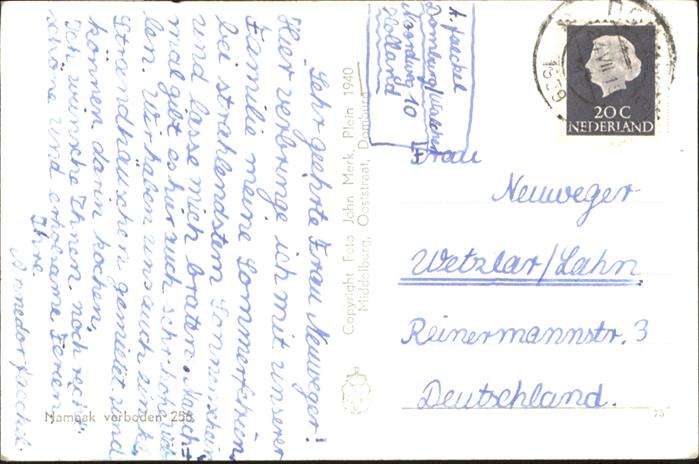 Sehr geehrte Frau Neuweger!
Hier verbringe ich mit unserer
Familie meine Sommerferien,
bei strahlendstem Sonnenschein
und lasse mich braten. Manch-
mal gibt es hier auch sehr hohe
len. Wir haben uns auch ein kl.
Strandhäuschen gemietet und
können darin kochen.
Ich wünsche Ihnen noch recht
schöne und erholsame Ferien
Ihre
A. Jaeckel
Domburg/Walcheren
Noordweg 10
Holland
Copyright Foto John Merk, Plein 1940
Middelburg, Ooststraat, Domburg
Namaak verboden 258
20 C
NEDERLAND
Frau
Neuweger
Wetzlar/Lahn
Reinermannstr. 3
Deutschland.